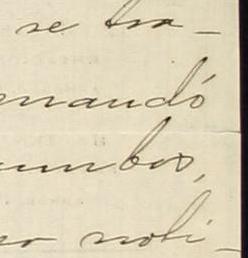 se tra-
mandó
rumbos,
no noti-